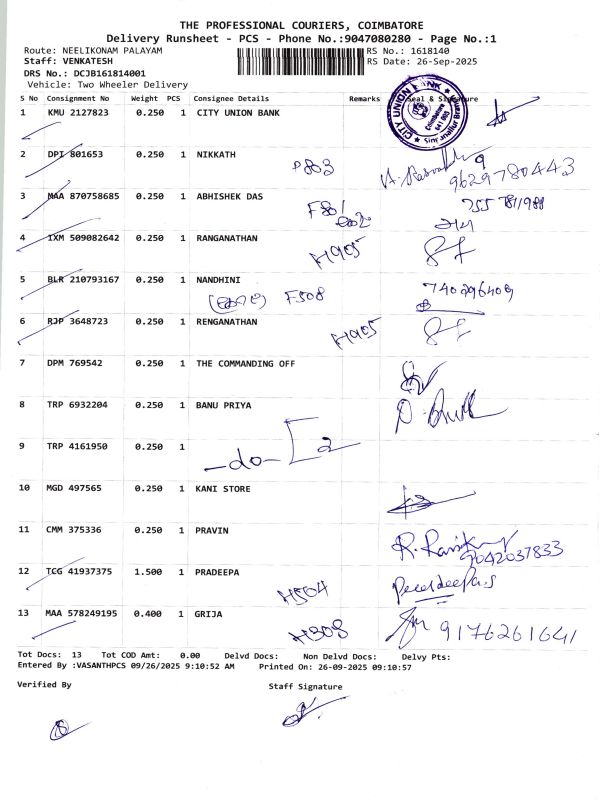 THE PROFESSIONAL COURIERS, COIMBATORE
Delivery Runsheet - PCS - Phone No.:9047080280 - Page No.:1
Route: NEELIKONAM PALAYAM RS No.: 1618140
Staff: VENKATESH RS Date: 26-Sep-2025
DRS No.: DCJB161814001
Vehicle: Two Wheeler Delivery
S No Consignment No Weight PCS Consignee Details Remarks Seal & Signature
CITY UNION BANK
Coimbatore
1 KMU 2127823 0.250 1 CITY UNION BANK
2 DPI 801653 0.250 1 NIKKATH
9629780443
3 MAA 870758685 0.250 1 ABHISHEK DAS
F801
4 IXM 509082642 0.250 1 RANGANATHAN H905
5 BLR 210793167 0.250 1 NANDHINI
F508 740296409
6 RJP 3648723 0.250 1 RENGANATHAN H905
7 DPM 769542 0.250 1 THE COMMANDING OFF
8 TRP 6932204 0.250 1 BANU PRIYA
9 TRP 4161950 0.250 1
-do- 2
10 MGD 497565 0.250 1 KANI STORE
11 CMM 375336 0.250 1 PRAVIN
9042037833
12 TCG 41937375 1.500 1 PRADEEPA
H504
13 MAA 578249195 0.400 1 GRIJA
H308 9176261641
Tot Docs: 13 Tot COD Amt: 0.00 Delvd Docs: Non Delvd Docs: Delvy Pts:
Entered By :VASANTHPCS 09/26/2025 9:10:52 AM Printed On: 26-09-2025 09:10:57
Verified By Staff Signature